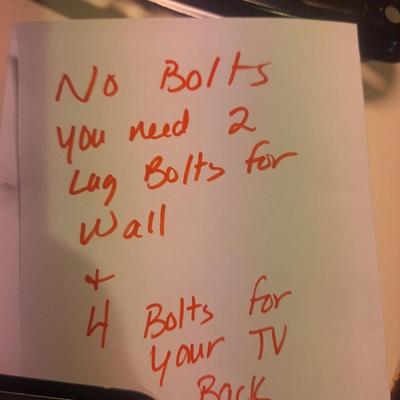 No Bolts
you need 2
Lag Bolts for
Wall
+
4 Bolts for
your TV
Back